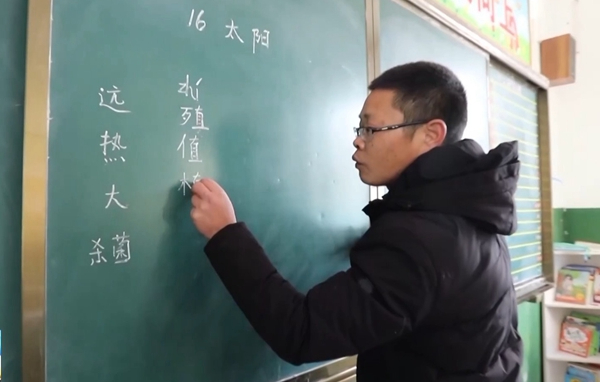 16 太阳
远
热
大
杀菌
zhí
殖
值